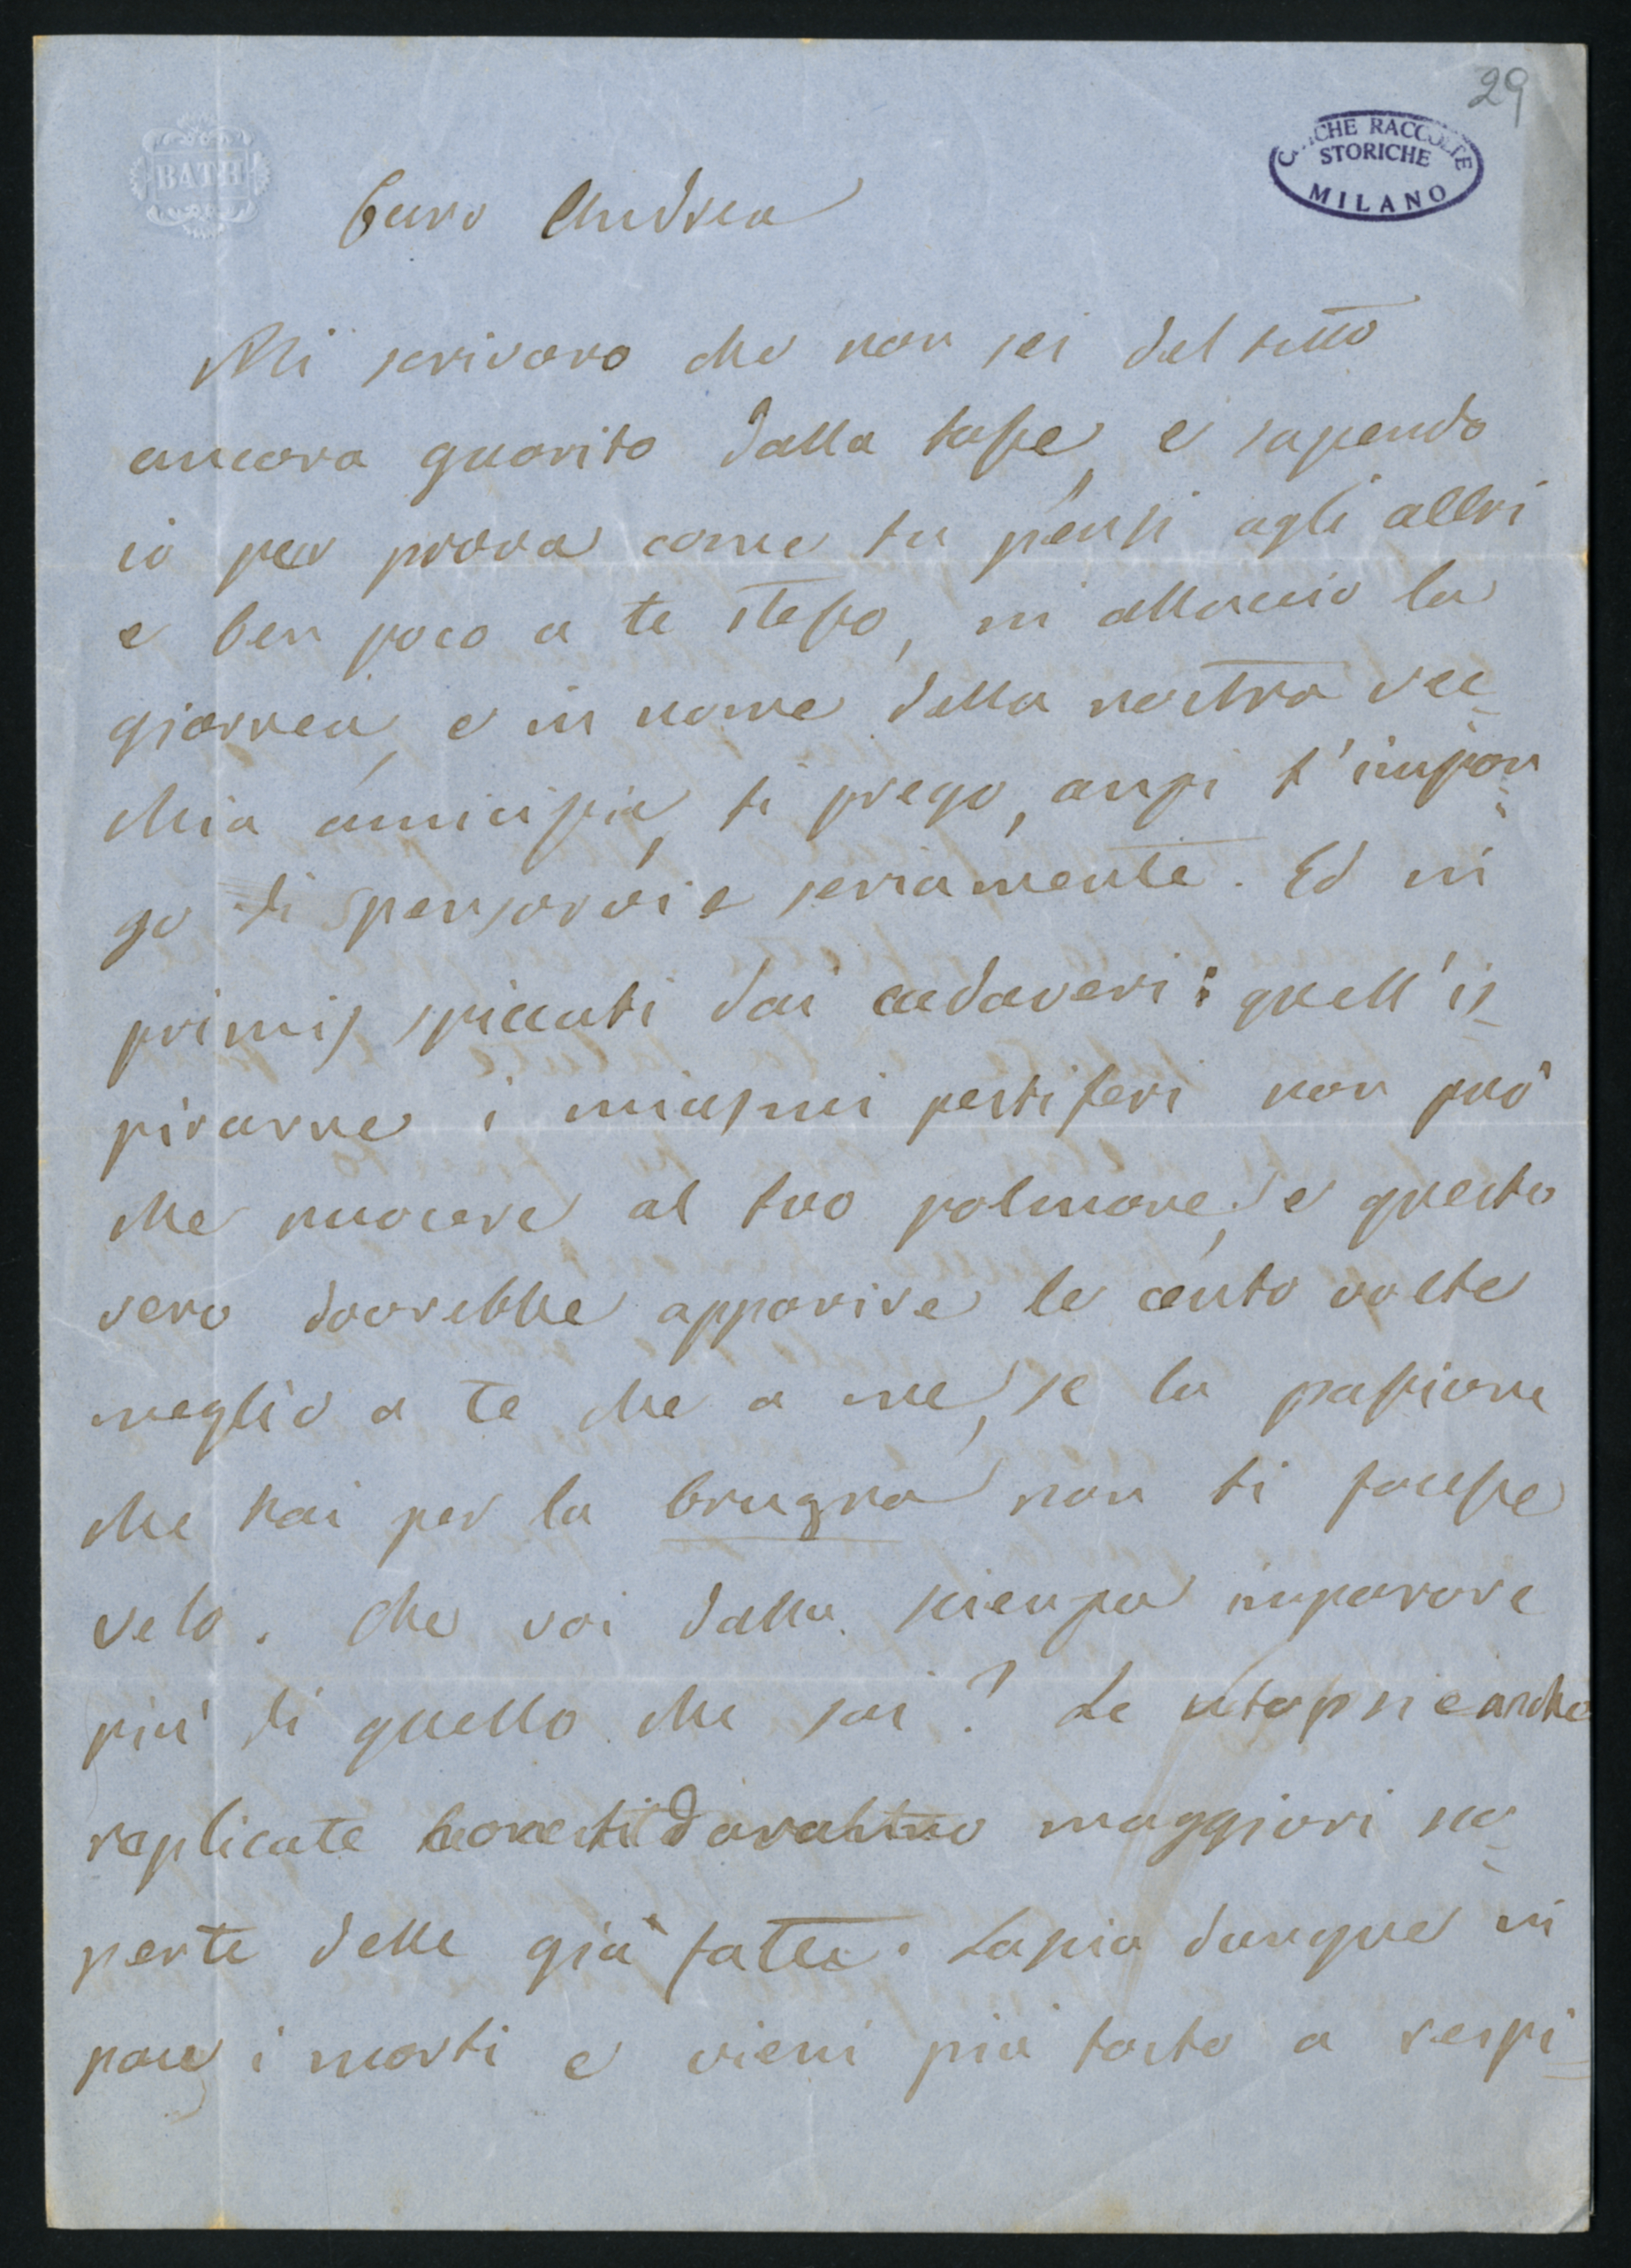 29
CIVICHE RACCOLTE
STORICHE
MILANO
BATH
Caro Andrea
Mi scrivono che non sei del tutto
ancora guarito dalla tosse, e sapendo
io per prova come tu pensi agli altri
e ben poco a te stesso, mi allaccio la
giornea, e in nome della nostra vec=
chia amicizia, ti prego, anzi t'impon=
go di pensarvi e seriamente. Ed in
primis, spiccati dai cadaveri: quell'is=
pirarne i miasmi pestiferi non può
che nuocere al tuo polmone, e questo
vero dovrebbe apparire le cento volte
meglio a te che a me, se la passione
che hai per la brugna non ti facesse
velo. Che voi dalla scienza imparare
più di quello che sai? Le anche
replicate daranno maggiori sco=
perte delle già fatte. Lascia dunque in
pace i morti e vieni più tosto a respi=